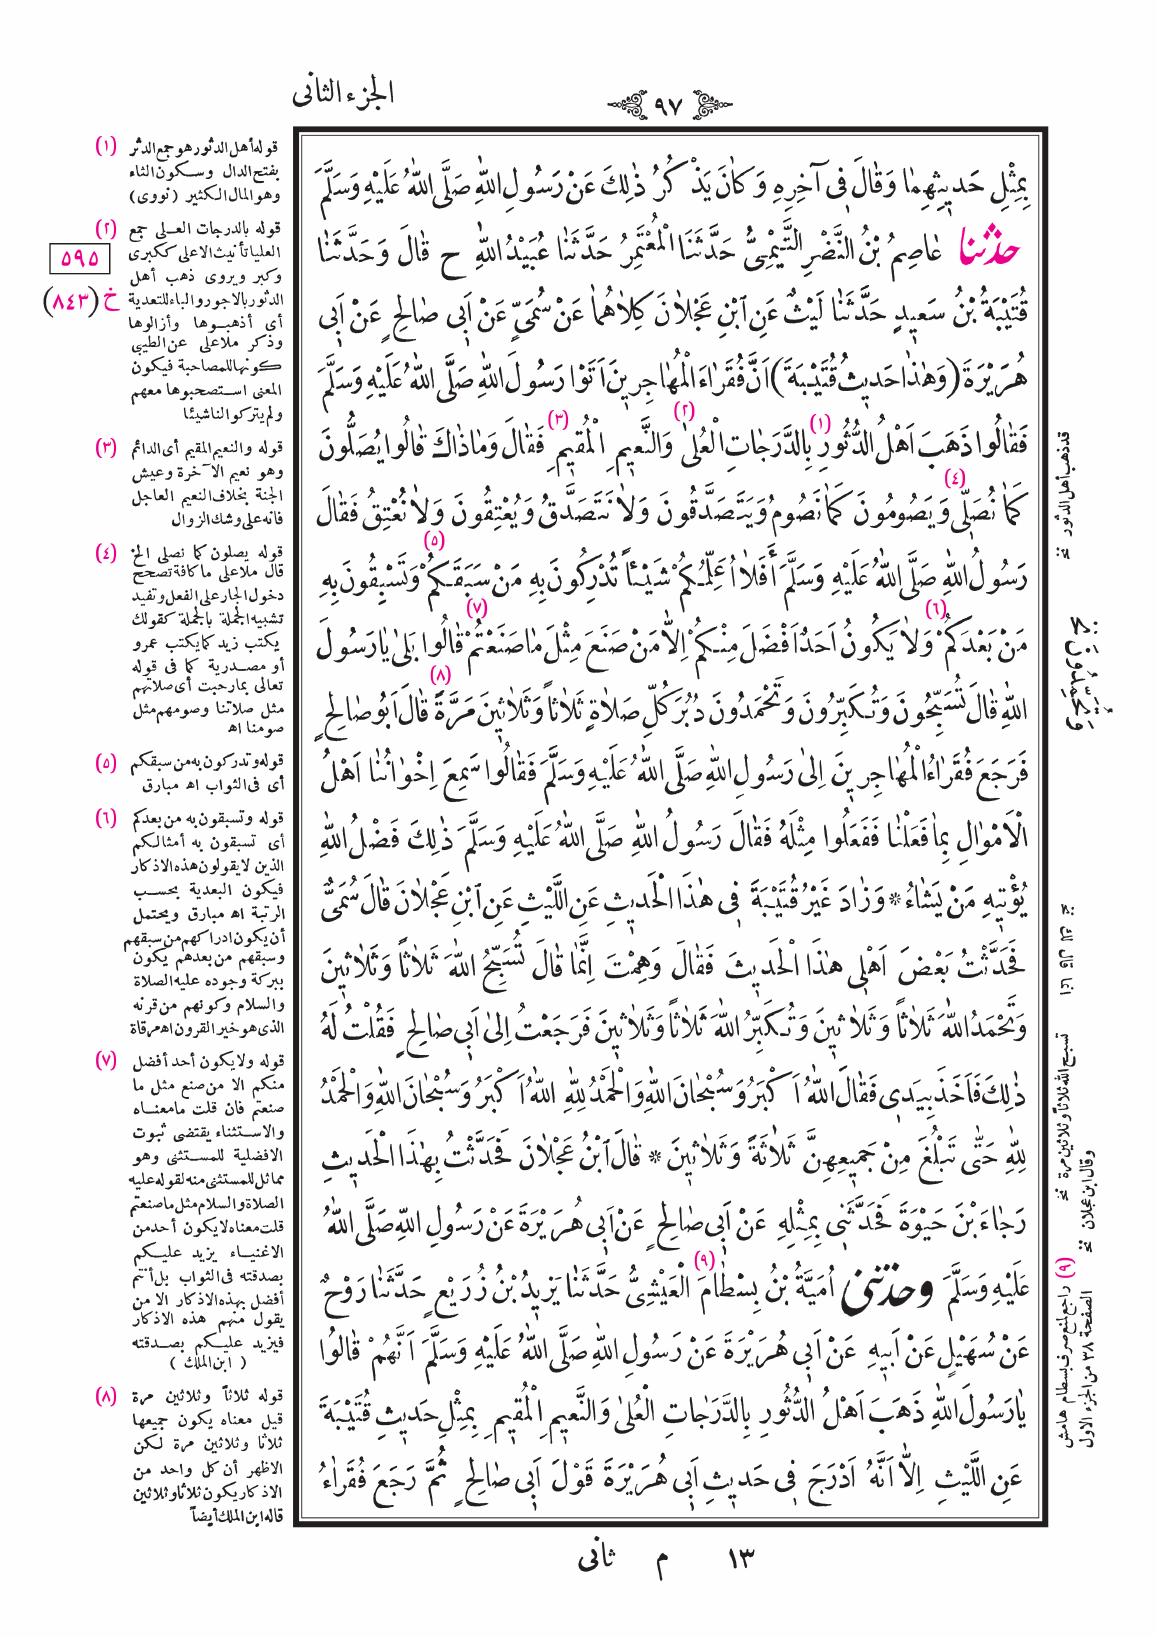 ٩٧
الجزء الثانى
بِمِثْلِ حَدِيثِهِمَا وَقَالَ فِى آخِرِهِ وَكَانَ يَذْكُرُ ذٰلِكَ عَنْ رَسُولِ اللهِ صَلَّى اللهُ عَلَيْهِ وَسَلَّمَ
حدثنا عَاصِمُ بْنُ النَّضْرِ التَّيْمِىُّ حَدَّثَنَا الْمُعْتَمِرُ حَدَّثَنَا عُبَيْدُ اللهِ ح قَالَ وَحَدَّثَنَا
قُتَيْبَةُ بْنُ سَعِيدٍ حَدَّثَنَا لَيْثٌ عَنِ ابْنِ عَجْلَانَ كِلَاهُمَا عَنْ سُمَىٍّ عَنْ اَبِى صَالِحٍ عَنْ اَبِى
هُرَيْرَةَ (وَهٰذَا حَدِيثُ قُتَيْبَةَ) اَنَّ فُقَرَاءَ الْمُهَاجِرِينَ اَتَوْا رَسُولَ اللهِ صَلَّى اللهُ عَلَيْهِ وَسَلَّمَ
فَقَالُوا ذَهَبَ اَهْلُ الدُّثُورِ (١) بِالدَّرَجَاتِ الْعُلَى (٢) وَالنَّعِيمِ الْمُقِيمِ (٣) فَقَالَ وَمَا ذَاكَ قَالُوا يُصَلُّونَ
كَمَا نُصَلِّى (٤) وَيَصُومُونَ كَمَا نَصُومُ وَيَتَصَدَّقُونَ وَلَا نَتَصَدَّقُ وَيُعْتِقُونَ وَلَا نُعْتِقُ فَقَالَ
رَسُولُ اللهِ صَلَّى اللهُ عَلَيْهِ وَسَلَّمَ أَفَلَا اُعَلِّمُكُمْ شَيْئاً تُدْرِكُونَ بِهِ مَنْ سَبَقَكُمْ (٥) وَتَسْبِقُونَ بِهِ
مَنْ بَعْدَكُمْ (٦) وَلَا يَكُونُ اَحَدٌ اَفْضَلَ مِنْكُمْ اِلَّا مَنْ صَنَعَ مِثْلَ مَا صَنَعْتُمْ (٧) قَالُوا بَلَى يَا رَسُولَ
اللهِ قَالَ تُسَبِّحُونَ وَتُكَبِّرُونَ وَتَحْمَدُونَ دُبُرَ كُلِّ صَلَاةٍ ثَلَاثاً وَثَلَاثِينَ مَرَّةً (٨) قَالَ اَبُو صَالِحٍ
فَرَجَعَ فُقَرَاءُ الْمُهَاجِرِينَ اِلَى رَسُولِ اللهِ صَلَّى اللهُ عَلَيْهِ وَسَلَّمَ فَقَالُوا سَمِعَ اِخْوَانُنَا اَهْلُ
الْاَمْوَالِ بِمَا فَعَلْنَا فَفَعَلُوا مِثْلَهُ فَقَالَ رَسُولُ اللهِ صَلَّى اللهُ عَلَيْهِ وَسَلَّمَ ذٰلِكَ فَضْلُ اللهِ
يُؤْتِيهِ مَنْ يَشَاءُ * وَزَادَ غَيْرُ قُتَيْبَةَ فِى هٰذَا الْحَدِيثِ عَنِ اللَّيْثِ عَنِ ابْنِ عَجْلَانَ قَالَ سُمَىٌّ
فَحَدَّثْتُ بَعْضَ اَهْلِى هٰذَا الْحَدِيثَ فَقَالَ وَهِمْتَ اِنَّمَا قَالَ تُسَبِّحُ اللهَ ثَلَاثاً وَثَلَاثِينَ
وَتَحْمَدُ اللهَ ثَلَاثاً وَثَلَاثِينَ وَتُكَبِّرُ اللهَ ثَلَاثاً وَثَلَاثِينَ فَرَجَعْتُ اِلَى اَبِى صَالِحٍ فَقُلْتُ لَهُ
ذٰلِكَ فَاَخَذَ بِيَدِى فَقَالَ اللهُ اَكْبَرُ وَسُبْحَانَ اللهِ وَالْحَمْدُ لِلّٰهِ اللهُ اَكْبَرُ وَسُبْحَانَ اللهِ وَالْحَمْدُ
لِلّٰهِ حَتَّى تَبْلُغَ مِنْ جَمِيعِهِنَّ ثَلَاثَةً وَثَلَاثِينَ * قَالَ ابْنُ عَجْلَانَ فَحَدَّثْتُ بِهٰذَا الْحَدِيثِ
رَجَاءَ بْنَ حَيْوَةَ فَحَدَّثَنِى بِمِثْلِهِ عَنْ اَبِى صَالِحٍ عَنْ اَبِى هُرَيْرَةَ عَنْ رَسُولِ اللهِ صَلَّى اللهُ
عَلَيْهِ وَسَلَّمَ وحدثنى اُمَيَّةُ بْنُ بِسْطَامَ (٩) الْعَيْشِىُّ حَدَّثَنَا يَزِيدُ بْنُ زُرَيْعٍ حَدَّثَنَا رَوْحٌ
عَنْ سُهَيْلٍ عَنْ اَبِيهِ عَنْ اَبِى هُرَيْرَةَ عَنْ رَسُولِ اللهِ صَلَّى اللهُ عَلَيْهِ وَسَلَّمَ اَنَّهُمْ قَالُوا
يَا رَسُولَ اللهِ ذَهَبَ اَهْلُ الدُّثُورِ بِالدَّرَجَاتِ الْعُلَى وَالنَّعِيمِ الْمُقِيمِ بِمِثْلِ حَدِيثِ قُتَيْبَةَ
عَنِ اللَّيْثِ اِلَّا اَنَّهُ اَدْرَجَ فِى حَدِيثِ اَبِى هُرَيْرَةَ قَوْلَ اَبِى صَالِحٍ ثُمَّ رَجَعَ فُقَرَاءُ
قد ذهب أهل الدثور نخ
وَتُحَمِّدُونَ نخ
تسبح الله ثلاثاً وثلاثين مرة نخ
وقال ابن عجلان نخ
(٩) راجع لمنع صرف بسطام هامش
الصفحة ٣٨ من الجزء الاول
(١) قوله أهل الدثور هو جمع الدثر
بفتح الدال وسكون الثاء
وهو المال الكثير (نووى)
(٢) قوله بالدرجات العلى جمع
العليا تأنيث الاعلى ككبرى
وكبر ويروى ذهب أهل
الدثور بالاجور والباء للتعدية
أى أذهبوها وأزالوها
وذكر ملاعلى عن الطيبى
كونها للمصاحبة فيكون
المعنى استصحبوها معهم
ولم يتركوا لنا شيئا
٥٩٥
خ (٨٤٣)
(٣) قوله والنعيم المقيم أى الدائم
وهو نعيم الآخرة وعيش
الجنة بخلاف النعيم العاجل
فانه على وشك الزوال
(٤) قوله يصلون كما نصلى الخ
قال ملاعلى ما كافة تصحح
دخول الجار على الفعل وتفيد
تشبيه الجملة بالجملة كقولك
يكتب زيد كما يكتب عمرو
أو مصدرية كما فى قوله
تعالى بما رحبت أى صلاتهم
مثل صلاتنا وصومهم مثل
صومنا اه
(٥) قوله وتدركون به من سبقكم
أى فى الثواب اه مبارق
(٦) قوله وتسبقون به من بعدكم
أى تسبقون به أمثالكم
الذين لا يقولون هذه الاذكار
فيكون البعدية بحسب
الرتبة اه مبارق ويحتمل
أن يكون ادراكهم من سبقهم
وسبقهم من بعدهم يكون
ببركة وجوده عليه الصلاة
والسلام وكونهم من قرنه
الذى هو خير القرون اه مرقاة
(٧) قوله ولا يكون أحد أفضل
منكم الا من صنع مثل ما
صنعتم فان قلت ما معناه
والاستثناء يقتضى ثبوت
الافضلية للمستثنى وهو
مماثل للمستثنى منه لقوله عليه
الصلاة والسلام مثل ما صنعتم
قلت معناه لا يكون أحد من
الاغنياء يزيد عليكم
بصدقته فى الثواب بل أنتم
أفضل بهذه الاذكار الا من
يقول منهم هذه الاذكار
فيزيد عليكم بصدقته
( ابن الملك )
(٨) قوله ثلاثاً وثلاثين مرة
قيل معناه يكون جميعها
ثلاثا وثلاثين مرة لكن
الاظهر أن كل واحد من
الاذكار يكون ثلاثا وثلاثين
قاله ابن الملك أيضاً
١٣ م ثانى